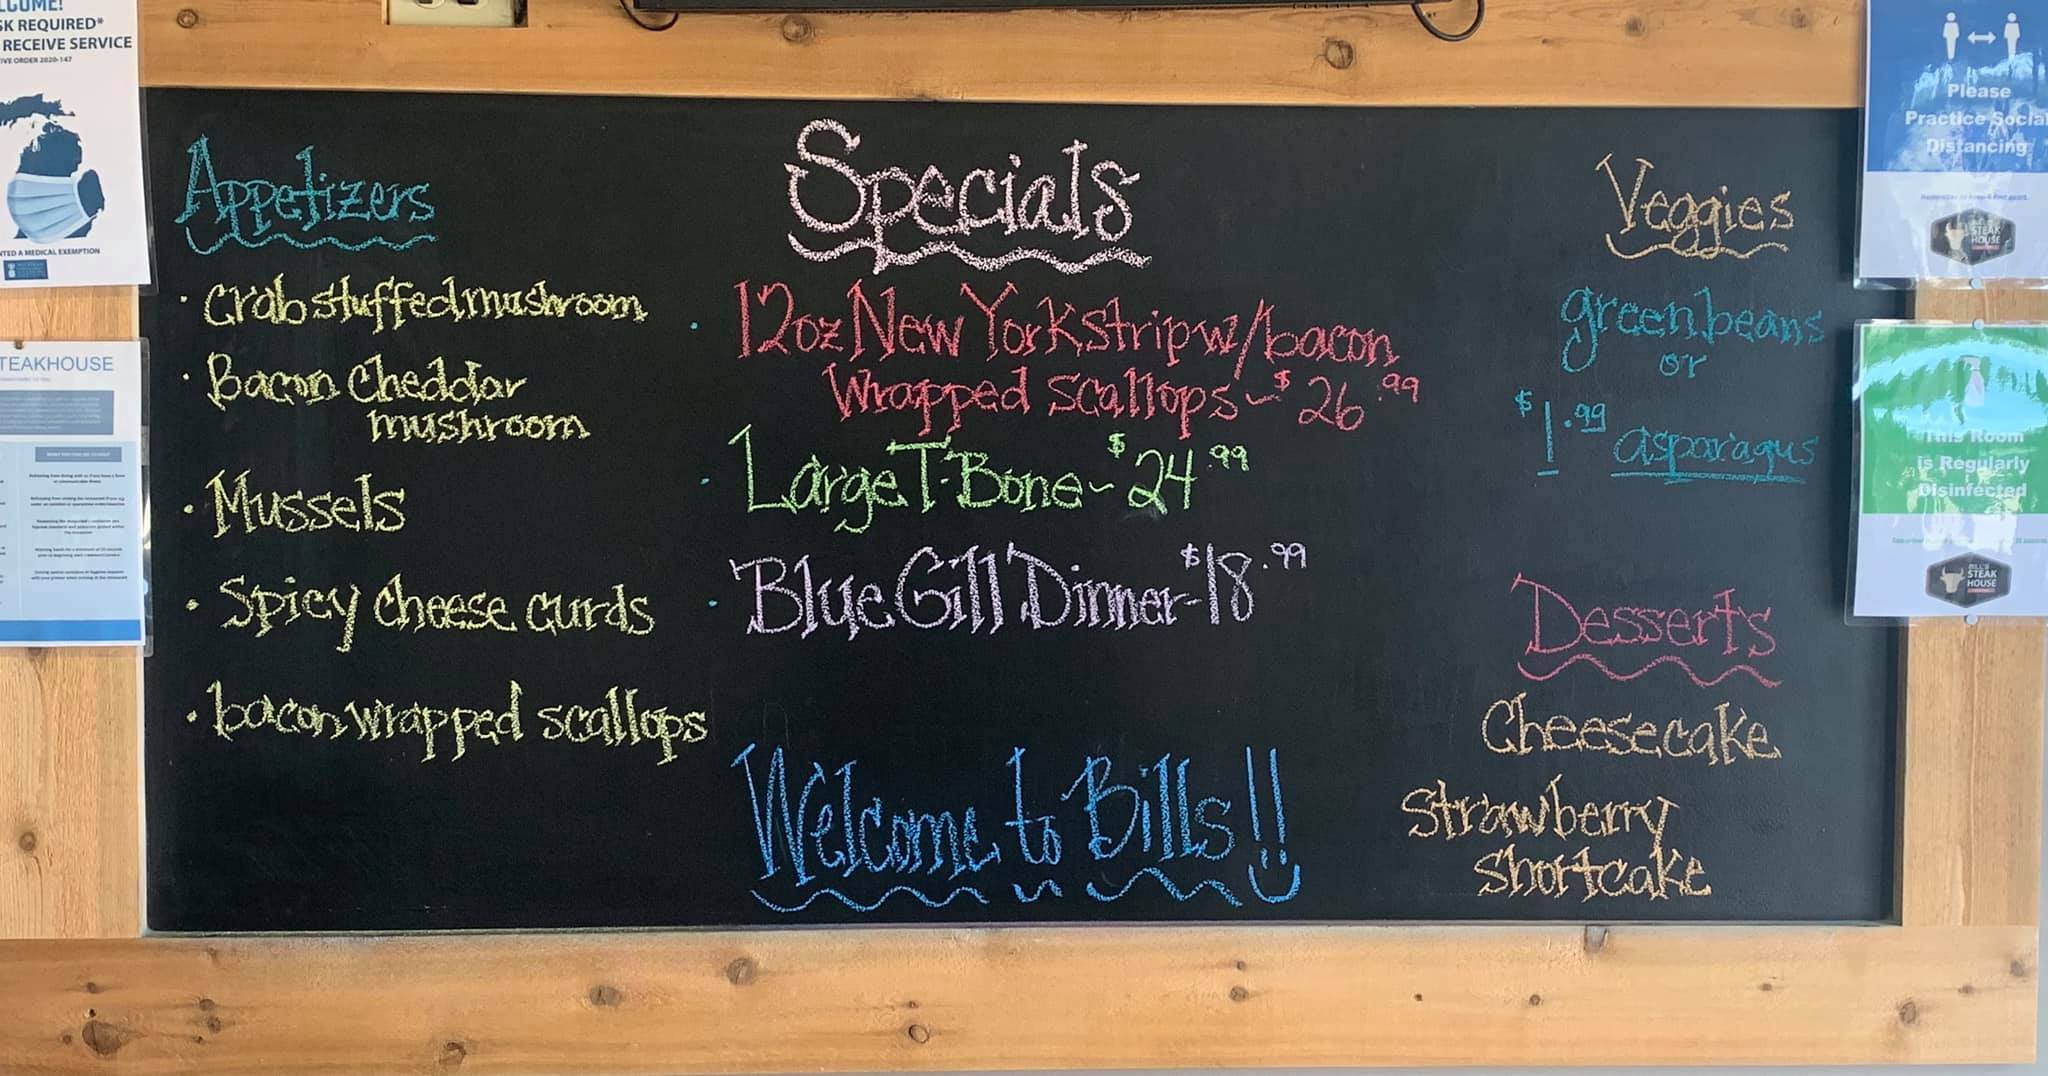 LCOME!
SK REQUIRED*
RECEIVE SERVICE
IVE ORDER 2020-147
NTED A MEDICAL EXEMPTION
TEAKHOUSE
Appetizers
• Crab stuffed mushroom
• Bacon Cheddar
mushroom
• Mussels
• Spicy Cheese curds
• bacon wrapped scallops
Specials
• 12oz New York strip w/bacon
Wrapped scallops ~ $26.99
• Large T-Bone ~ $24.99
• Blue Gill Dinner - $18.99
Welcome to Bills!!
Veggies
green beans
or
$1.99 asparagus
Desserts
Cheesecake
Strawberry
Shortcake
Please
Practice Social
Distancing
STEAK
HOUSE
This Room
is Regularly
Disinfected
BILL'S
STEAK
HOUSE